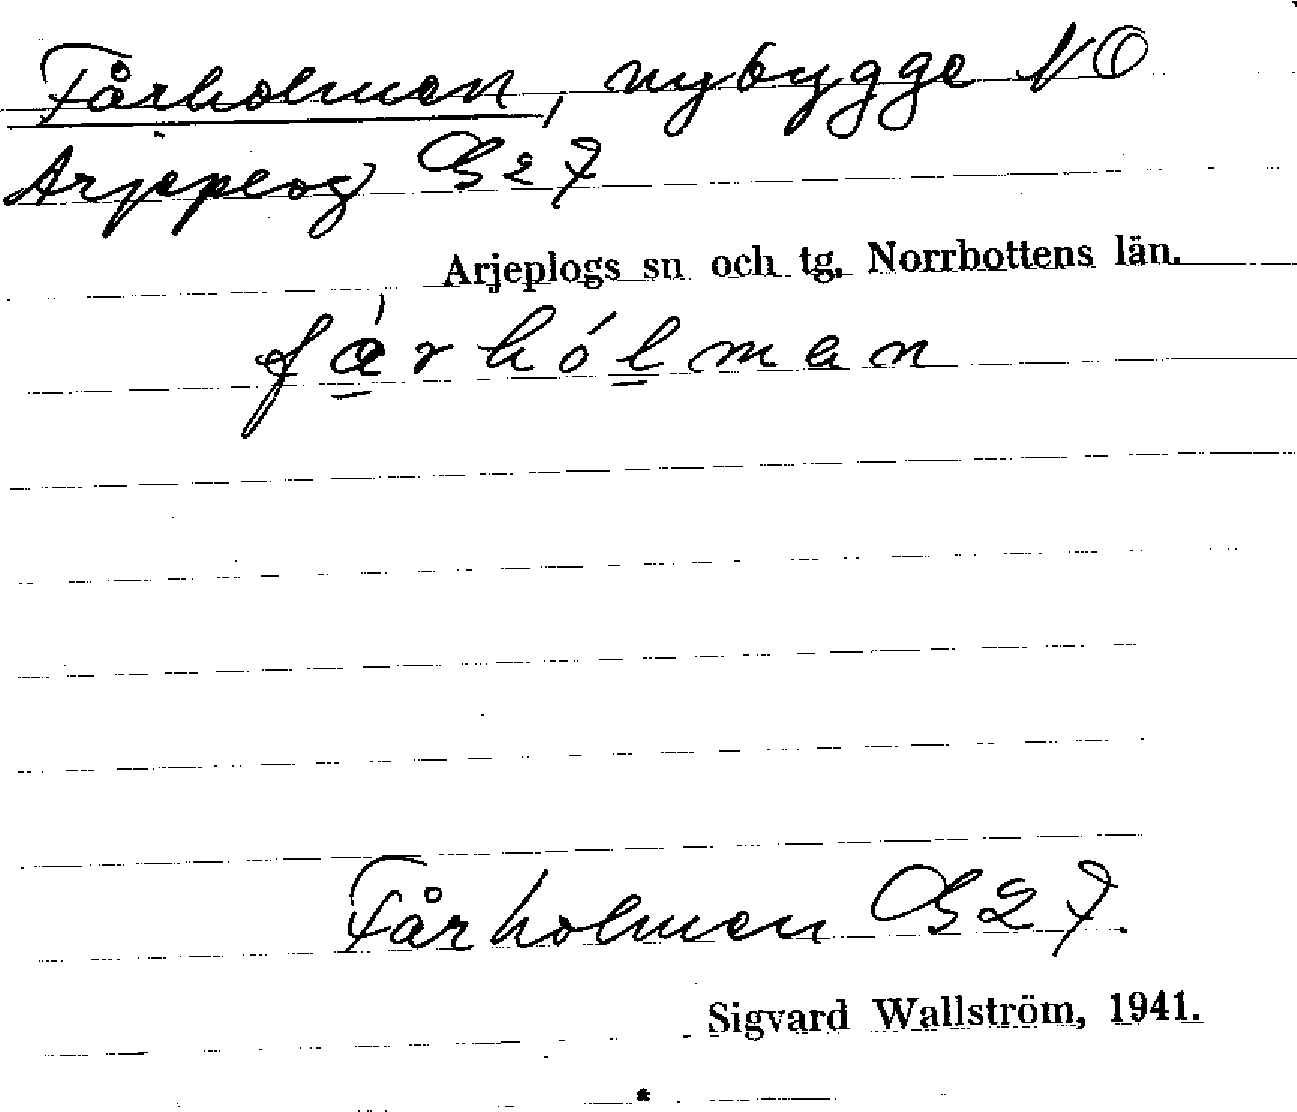 Fårholmen, nybygge NO
Arjeplog G 27
Arjeplogs sn och tg. Norrbottens län.
fa̲'rhól̲man
Fårholmen G 27.
Sigvard Wallström, 1941.